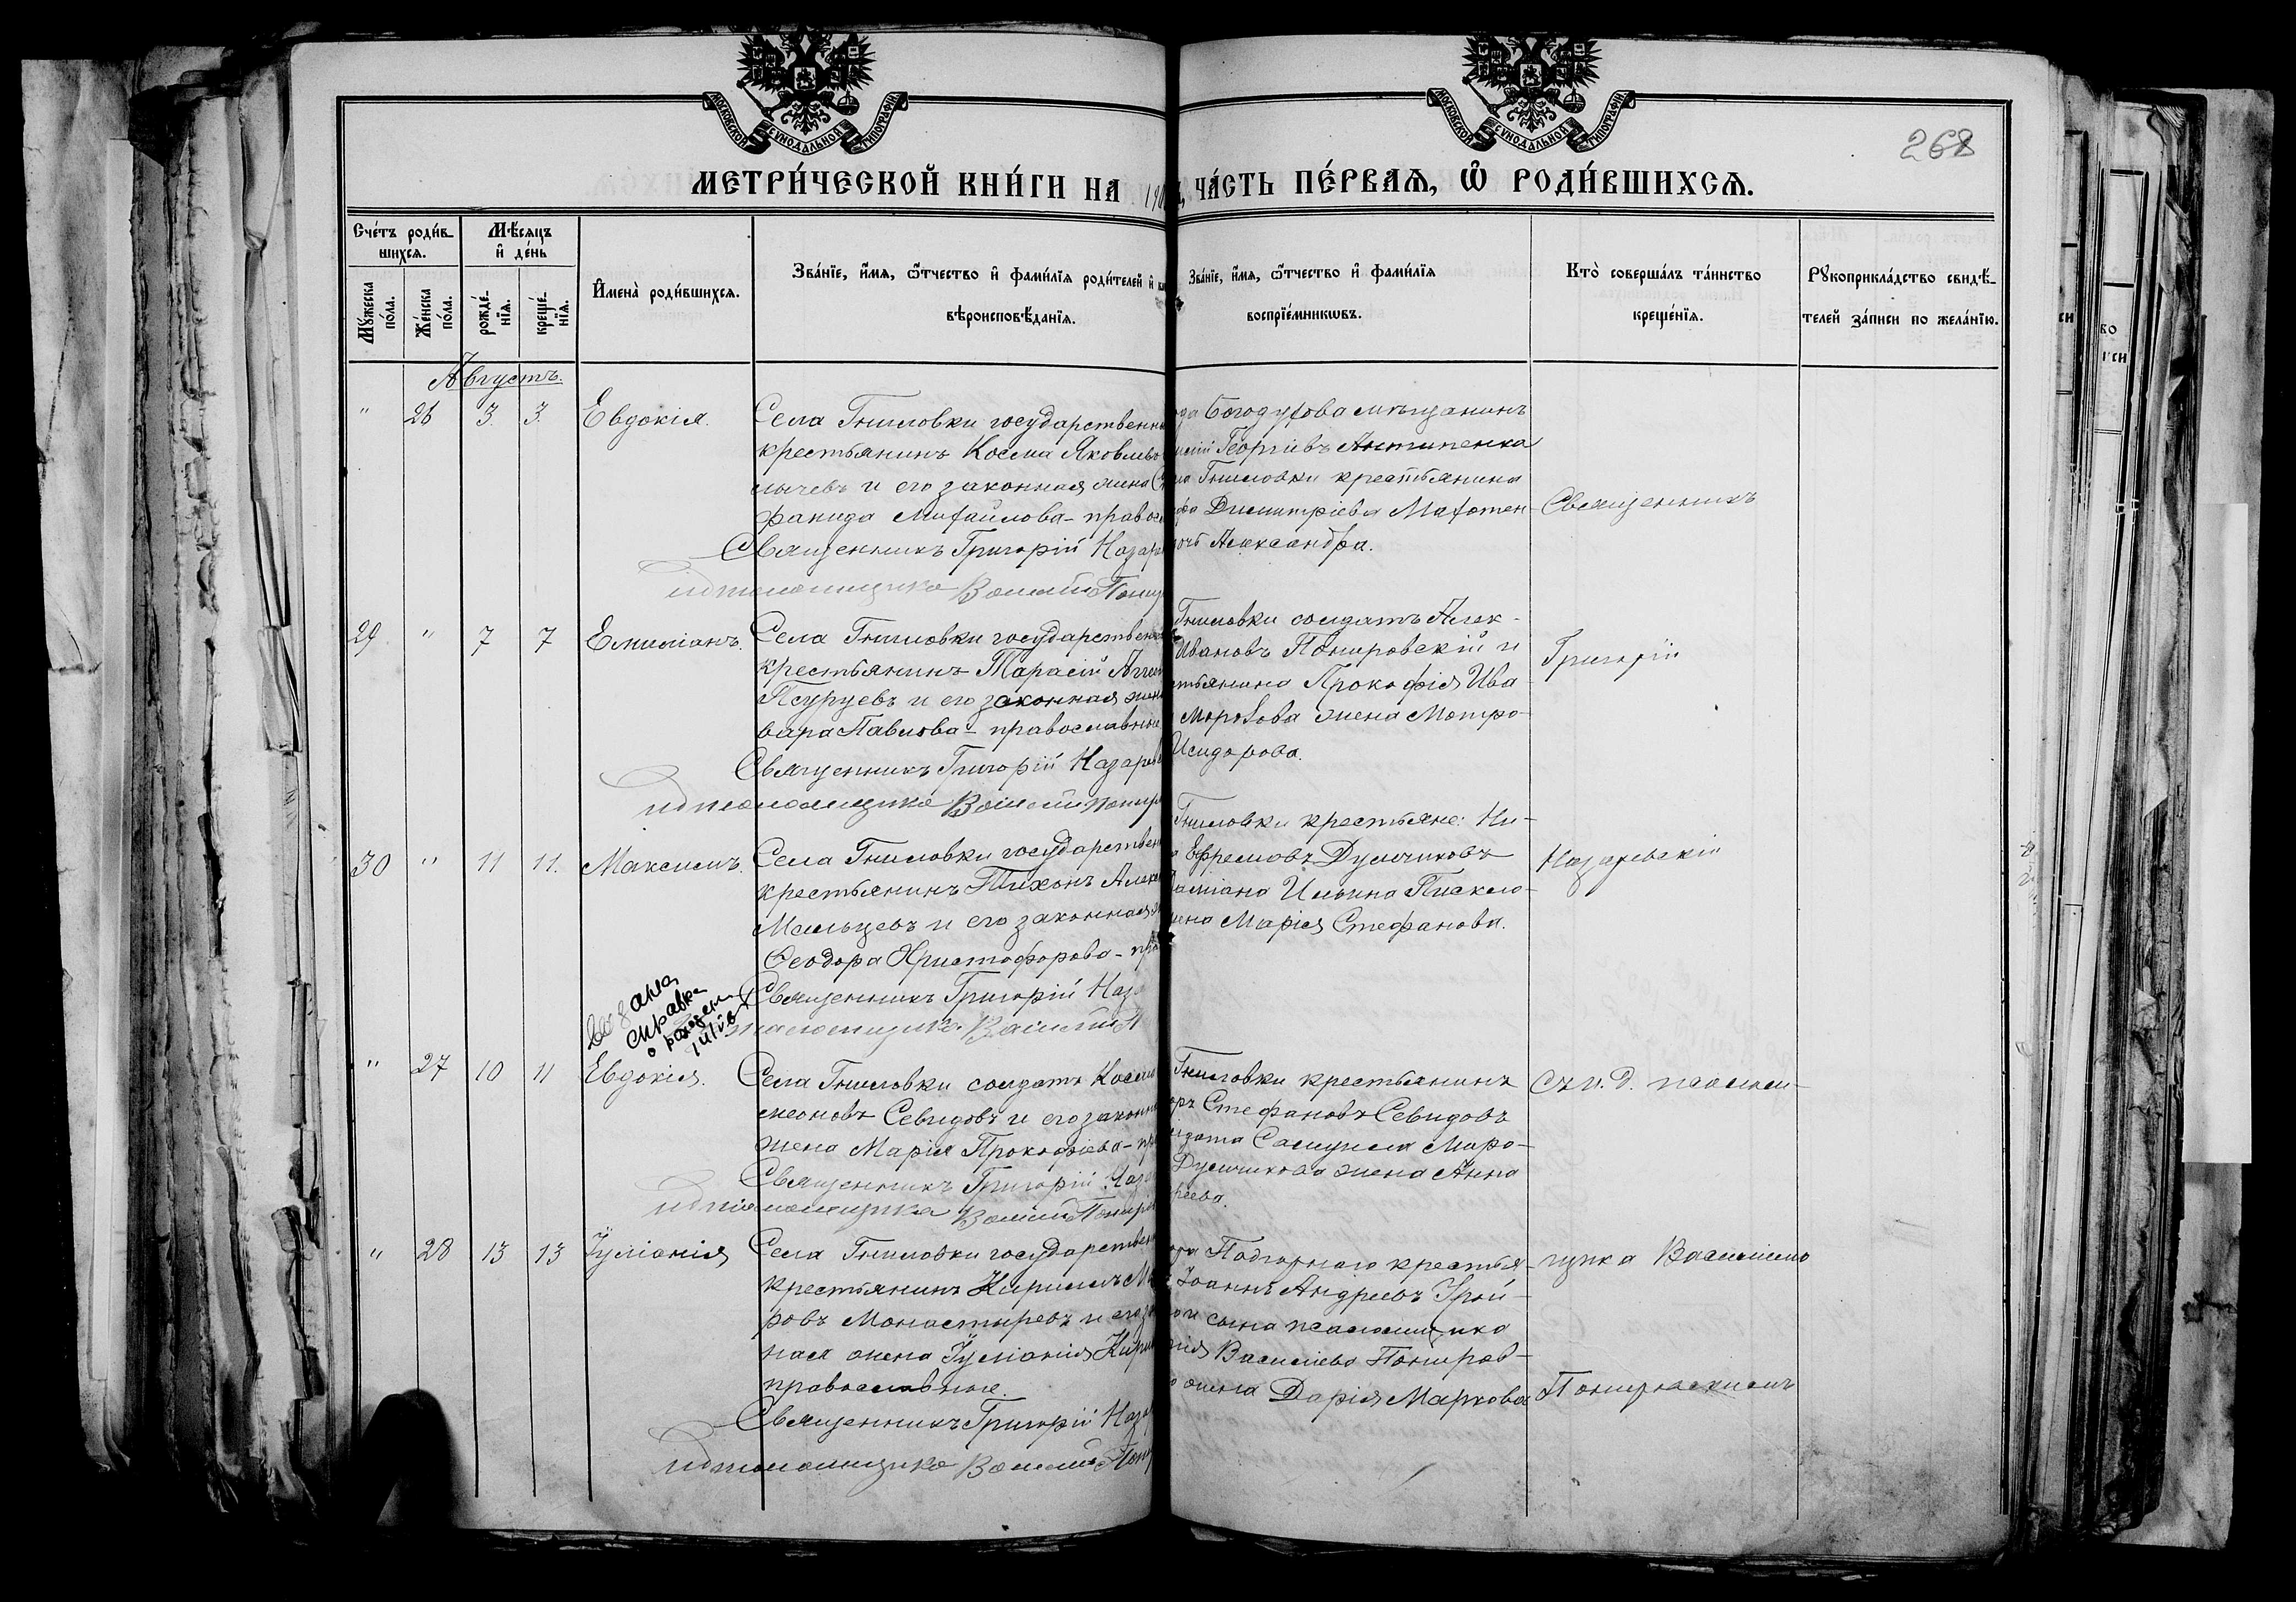 МОСКОВСКОЙ СѴНОДАЛЬНОЙ ТИПОГРАФІИ
МОСКОВСКОЙ СѴНОДАЛЬНОЙ ТИПОГРАФІИ
268
МЕТРИ́ЧЕСКОЙ КНИ́ГИ НА
ЧА́СТЬ ПЕ́РВАЯ, Ѡ҆ РОДИ́ВШИХСЯ.
Сче́тъ роди́в-
шихся.
Мꙋ́жеска по́ла.
Же́нска по́ла.
Мѣ́сяцъ
и҆ де́нь
рожде́-нїя.
креще́-нїя.
И҆мена̀ роди́вшихся.
Зва́нїе, и҆́мя, ѻ҆́тчество и҆ фами́лїя роди́телей и҆
вѣроисповѣ́данїя.
Зва́нїе, и҆́мя, ѻ҆́тчество и҆ фами́лїя
воспрїе́мникѡвъ.
Кто̀ соверша́лъ та́инство
креще́нїя.
Рꙋкоприкла́дство свидѣ́-
телей за́писи по жела́нїю.
Августъ.
" 26 3. 3. Евдокія.
Села Гниловки государственн
крестьянинъ Косма Яковлев
лычевъ и его законная жена
фанида Михайлова - правос
Священникъ Григорій Назар
псаломщика Василій Пони
ода Богодухова мѣщанинъ
Георгіевъ Антипенка
Гниловки крестьянина
Димитріева Махотен-
дочь Александра.
29 " 7 7 Емиліанъ.
Села Гниловки государствен
крестьянинъ Тарасій
Псуруевъ и его законная жен
вара Павлова - православны
Священникъ Григорій Назарев
псаломщика Василій Понир
Гниловки солдатъ Алек-
Ивановъ Понировскій и
стьянина Прокофія Ива-
Морозова жена Матро-
Исидорова.
30 " 11 11. Максимъ.
Села Гниловки государствен
крестьянинъ Тихонъ Алек
Мальцевъ и его законная
Ѳеодора Христофорова - пр
Священникъ Григорій Наза
псаломщика Василій П
Гниловки крестьяне: Ни-
Ефремовъ Думчиковъ
Даміана Ильина Пискло-
жена Марія Стефанова.
Выдана
справка
о рожден
" 27 10 11 Евдокія.
Села Гниловки солдатъ Косма
меоновъ Севидовъ и его законн
жена Марія Прокофіева - пр
Священникъ Григорій Наза
псаломщика Василій Понир
Гниловки крестьянинъ
Стефановъ Севидовъ
солдата Самуила Миро-
Думчикова жена Анна
" 28 13 13 Іуліанія
Села Гниловки государствен
крестьянинъ Кириллъ М
ровъ Монастыревъ и его за
ная жена Іуліанія Кири
православные.
Священникъ Григорій Наза
псаломщика Василій Пони
Подгорнаго крестья-
Іоаннъ Андреевъ
сына псаломщика
Василіева Пониров-
жена Дарія Маркова
Священникъ
Григорій
Назаревскій
съ и. д. псалом-
щика Василіемъ
Понировскимъ